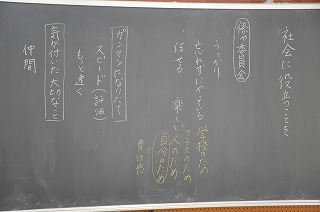 社会に役立つことを
係や委員会
・うっかり
忘れずにやる
・任せる 楽しい
学校のため
クラスのため
人のため
自分のため
責任感
ガンマンになりたて
・スピード(評価)
もっと速く
気が付いた大切なこと
仲間